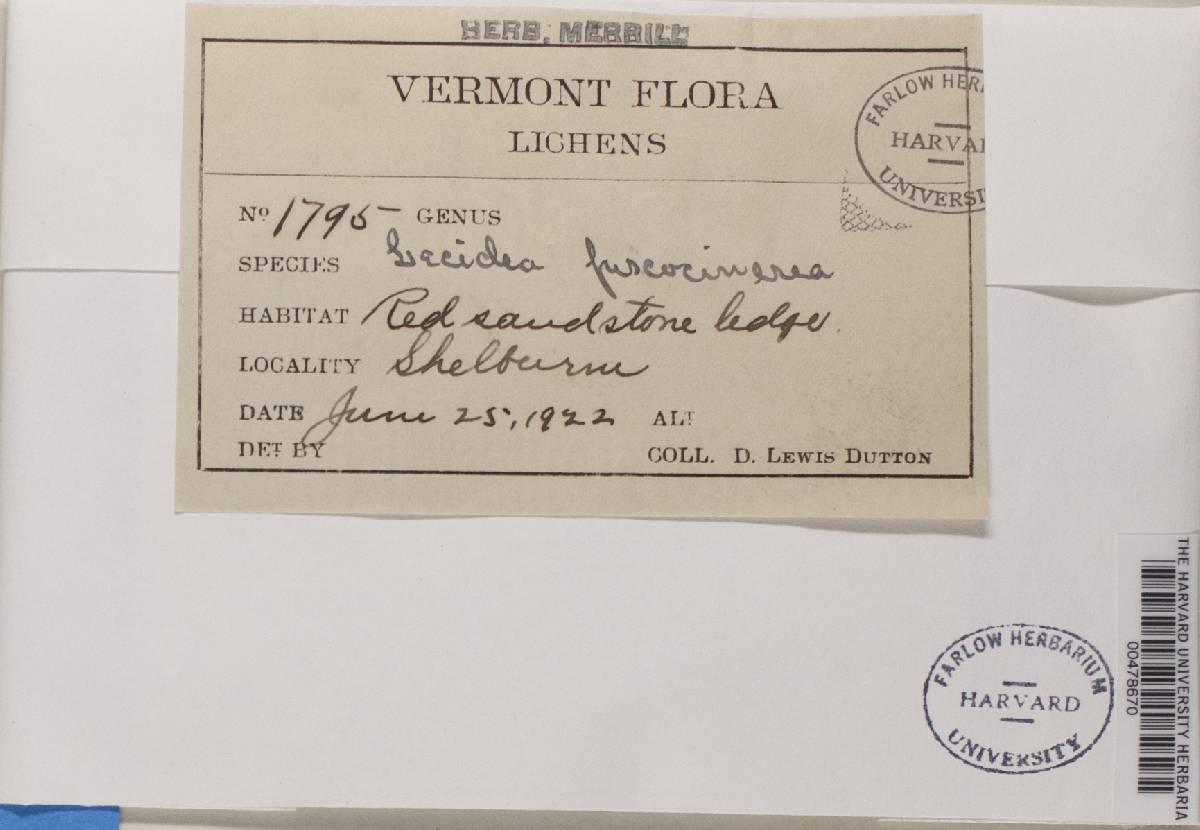 HERB. MERRILL
VERMONT FLORA
LICHENS
FARLOW HER
HARVA
UNIVERSI
No 1795 GENUS
SPECIES Lecidea fuscocinerea
HABITAT Red sandstone ledge.
LOCALITY Shelburne
DATE June 25, 1922 ALT
DET BY COLL. D. LEWIS DUTTON
FARLOW HERBARIUM
HARVARD
UNIVERSITY
THE HARVARD UNIVERSITY HERBARIA
00478670